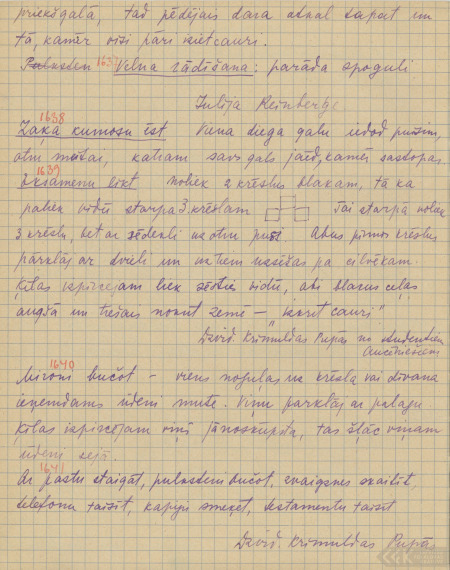 priekšgalā, tad pēdējais dara atkal tapat un
tā, kamēr visi pāri iziet cauri.
1637 Velna rādīšana: parāda spoguli
Jūlija Reinberga
1638
Zaķa kumosu ēst Viena diega galu iedod puisim,
otru meitai, katram savs gals jāēd, kamēr sastopas.
1639
Eksamenu likt noliek 2 krēslus blakam, tā ka
paliek vidū starpa 3. krēslam tai starpā noliek
3 krēslu, bet ar sēdekli uz otru pusi. Abus pirmos krēslus
parklāj ar dvieli un uz tiem uzsēžas pa cilvēkam.
Ķīlas izpircējam liek sēsties vidū, abi blakus ceļas
augšā un trešais nokrīt zemē – "izkrīt cauri"
David. Krimuldas Pupās no studentiem
1640
Mironi bučot – viens noguļas uz krēsla vai dīvana
ieņemdams ūdeni mutē. Viņu parklāj ar palagu
Ķīlas izpircējam viņš jānoskūpsta, tas šļāc viņam
ūdeni sejā.
1641
Ar pastu staigāt, pulksteni bučot, zvaigznes skaitīt,
telefonu taisīt, kapeju smeķēt, testamentu taisīt
David. Krimuldas Pupās